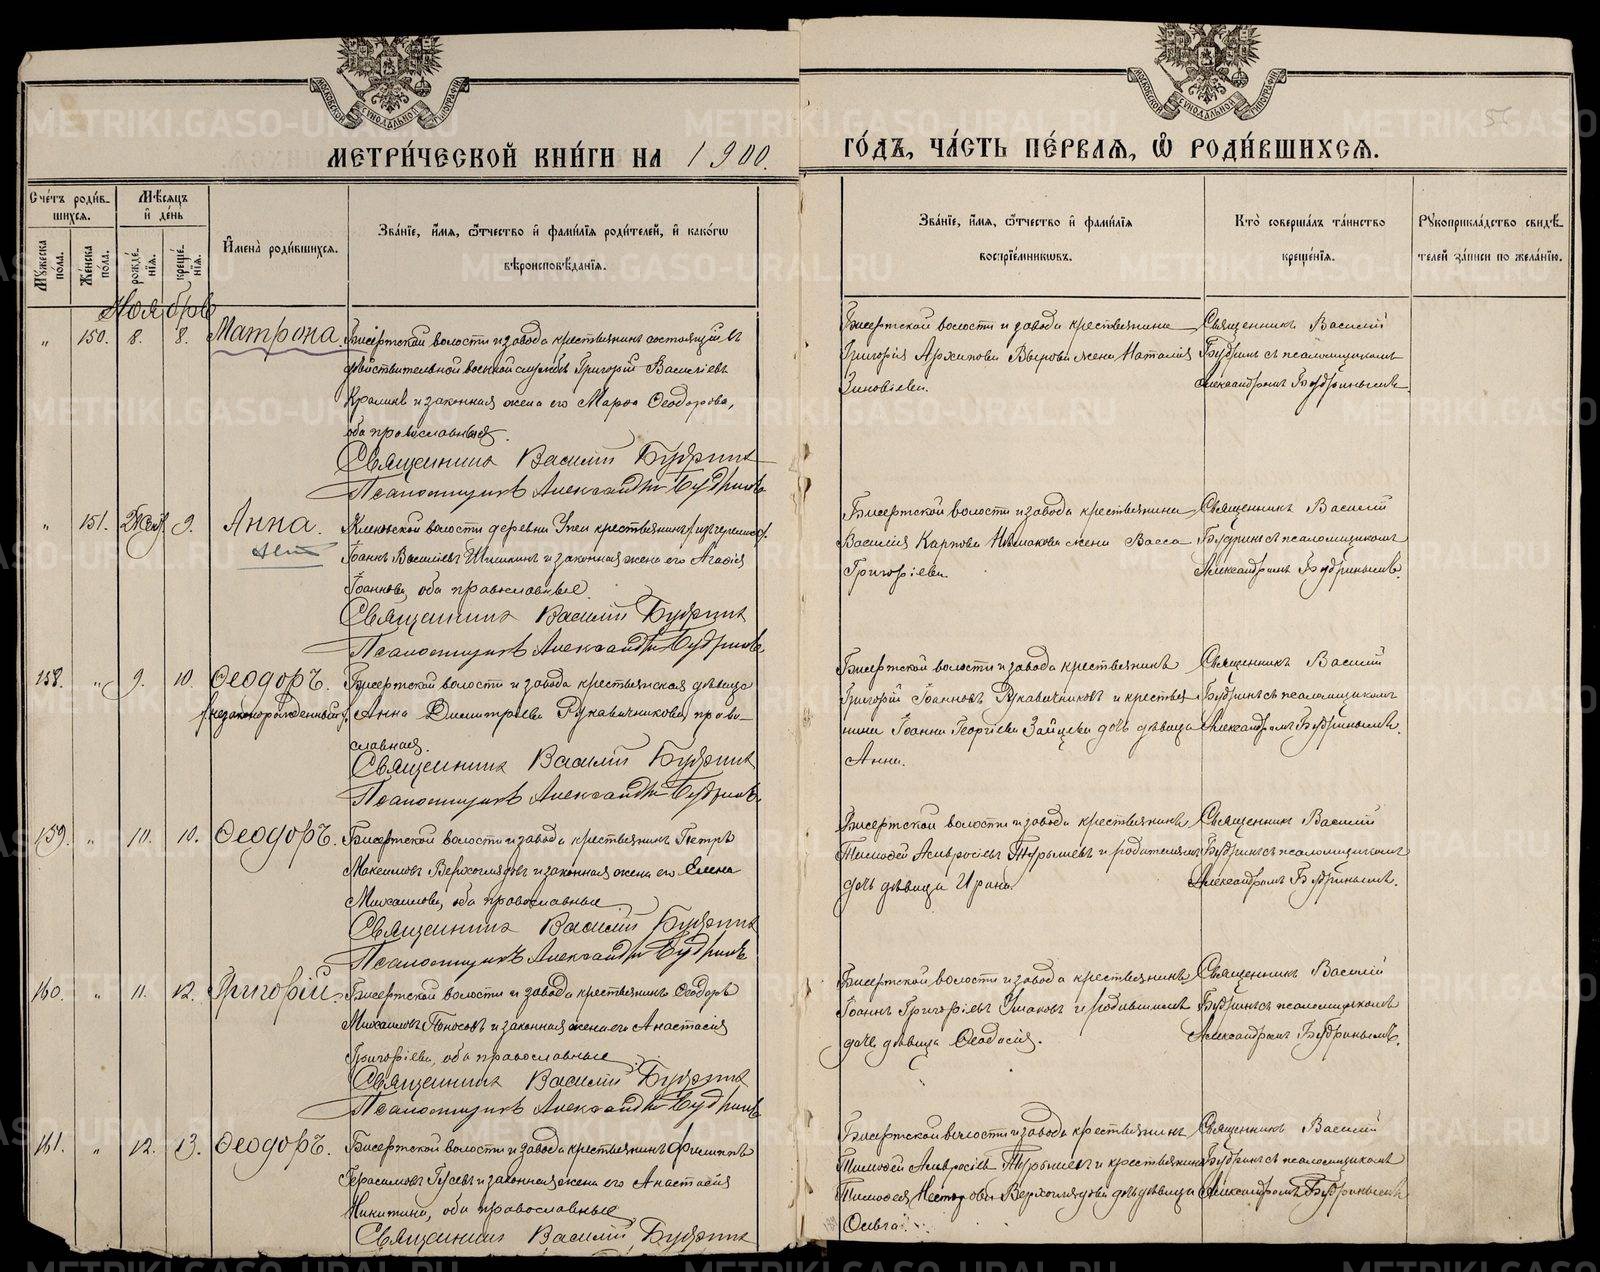 МЕТРИ́ЧЕСКОЙ КНИ́ГИ НА 1900
ГО́ДЪ, ЧА́СТЬ ПЕ́РВАѦ, Ѽ РОДИ́ВШИХСѦ.
Сче́тъ роди́в-
шихсѧ.
Мѣ́сѧцъ
и҆ де́нь
Мꙋ́жеска
по́ла.
Же́нска
по́ла.
рожде́-
нїѧ.
креще́-
нїѧ.
И҆мена̀ роди́вшихсѧ.
Зва́нїе, и҆́мѧ, ѻ҆́тчество и҆ фами́лїѧ роди́телей, и҆ како́гѡ
вѣроисповѣ́данїѧ.
Зва́нїе, и҆́мѧ, ѻ҆́тчество и҆ фами́лїѧ
воспрїе́мникѡвъ.
Кто̀ соверша́лъ та́инство
креще́нїѧ.
Рꙋкоприкла́дство свидѣ́-
телей за́писи по жела́нїю.
Ноябрь
„ 150. 8. 8. Матрона.
Бисертской волости и завода крестьянинъ состоящій въ
дѣйствительной военной службѣ Григорій Василіевъ
и законная жена его Марѳа Ѳеодорова,
оба православные.
Священникъ Василій Будринъ
Псаломщикъ Александръ Будринъ
Бисертской волости и завода крестьянина
Григорія Архипова жена Наталія
Зиновіева.
Священникъ Василій
Будринъ съ псаломщикомъ
Александромъ Будринымъ.
„ 151. 9. Анна.
Кленовской волости деревни крестьянинъ
Іоаннъ Василіевъ и законная жена его Агафія
Іоаннова, оба православные.
Священникъ Василій Будринъ
Псаломщикъ Александръ Будринъ
Бисертской волости и завода крестьянина
Василія Карпова жена Васса
Григоріева.
Священникъ Василій
Будринъ съ псаломщикомъ
Александромъ Будринымъ.
158. „ 9. 10. Ѳеодоръ.
(незаконорожденный)
Бисертской волости и завода крестьянская дѣвица
Анна Димитріева Рукавичникова, право-
славная.
Священникъ Василій Будринъ
Псаломщикъ Александръ Будринъ
Бисертской волости и завода крестьянинъ
Григорій Іоанновъ Рукавичниковъ и крестья-
нина Іоанна Георгіева Зайцева дочь дѣвица
Анна.
Священникъ Василій
Будринъ съ псаломщикомъ
Александромъ Будринымъ.
159. „ 10. 10. Ѳеодоръ.
Бисертской волости и завода крестьянинъ Петръ
Максимовъ Верхоглядовъ и законная жена его Елена
Михаилова, оба православные
Священникъ Василій Будринъ
Псаломщикъ Александръ Будринъ
Бисертской волости и завода крестьянинъ
Тимоѳей Амвросіевъ и
дочь дѣвица Ирина.
Священникъ Василій
Будринъ съ псаломщикомъ
Александромъ Будринымъ.
160. „ 11. 12. Григорій.
Бисертской волости и завода крестьянинъ Ѳеодоръ
Михаиловъ Поносовъ и законная жена его Анастасія
Григоріева, оба православные
Священникъ Василій Будринъ
Псаломщикъ Александръ Будринъ
Бисертской волости и завода крестьянинъ
Іоаннъ Григоріевъ Ушаковъ и
дочь дѣвица Ѳеодосія.
Священникъ Василій
Будринъ съ псаломщикомъ
Александромъ Будринымъ.
161. „ 12. 13. Ѳеодоръ.
Бисертской волости и завода крестьянинъ Филиппъ
Герасимовъ Гусевъ и законная жена его Анастасія
Никитина, оба православные
Священникъ Василій Будринъ
Бисертской волости и завода крестьянинъ
Тимоѳей Амвросіевъ и крестьянина
Тимоѳея Несторова Верхоглядова дочь дѣвица
Ольга.
Священникъ Василій
Будринъ съ псаломщикомъ
Александромъ Будринымъ
METRIKI.GASO-URAL.RU